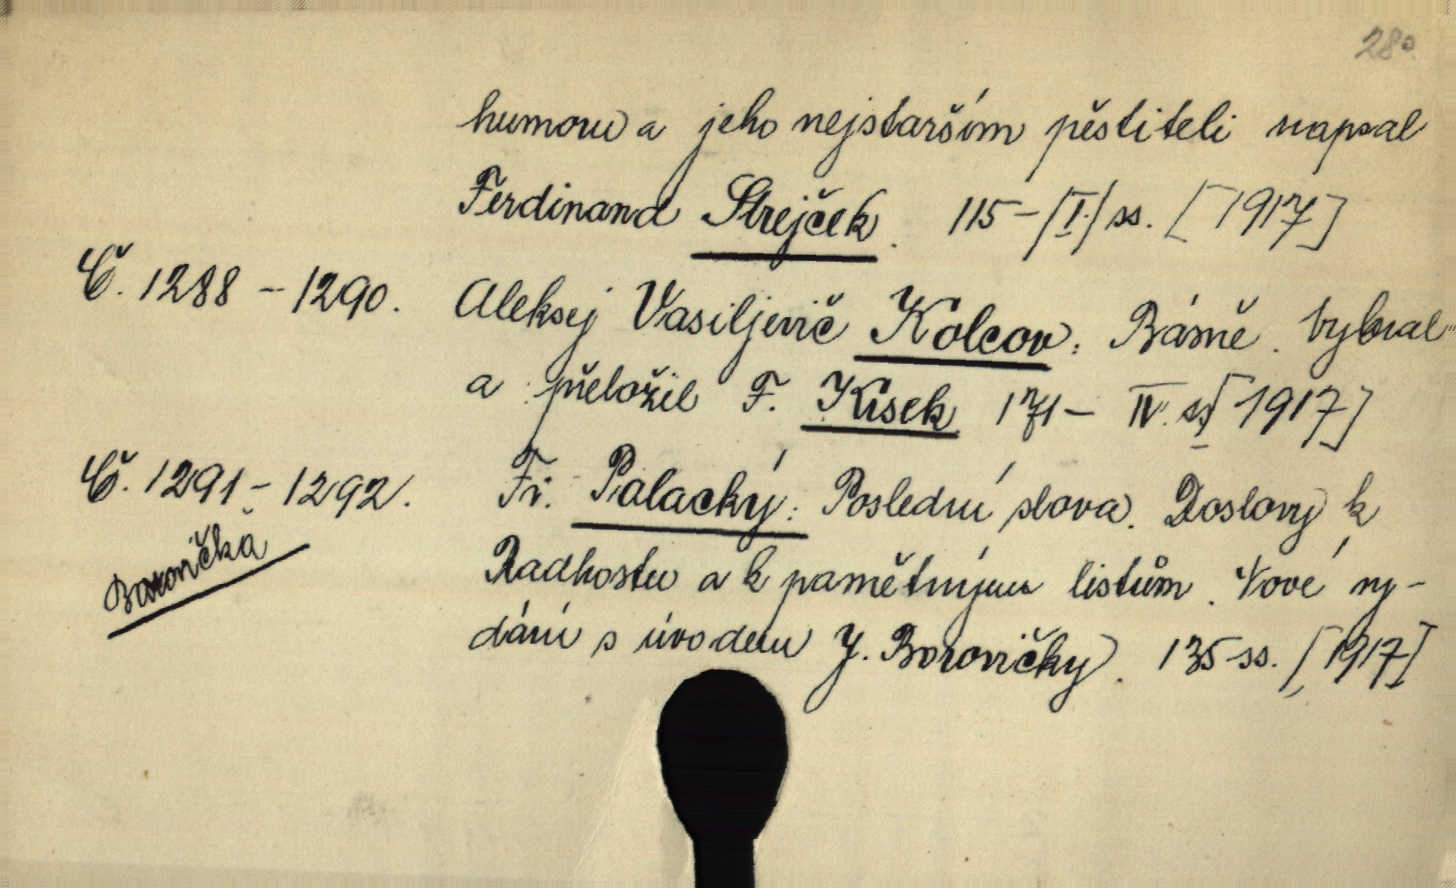 28a
humoru a jeho nejstarším pěstiteli napsal
Ferdinand Strejček. 115-/I./ ss. [1917]
Č. 1288-1290. Aleksej Vasiljevič Kolcov: Básně. Vybral
a přeložil F. Kisek 171- IV. ss [1917]
Č. 1291-1292. Fr. Palacký: Poslední slova. Doslovy k
Borovička
Radhostu a k pamětným listům. Nové vy-
dání s úvodem J. Borovičky. 135 ss. [1917]